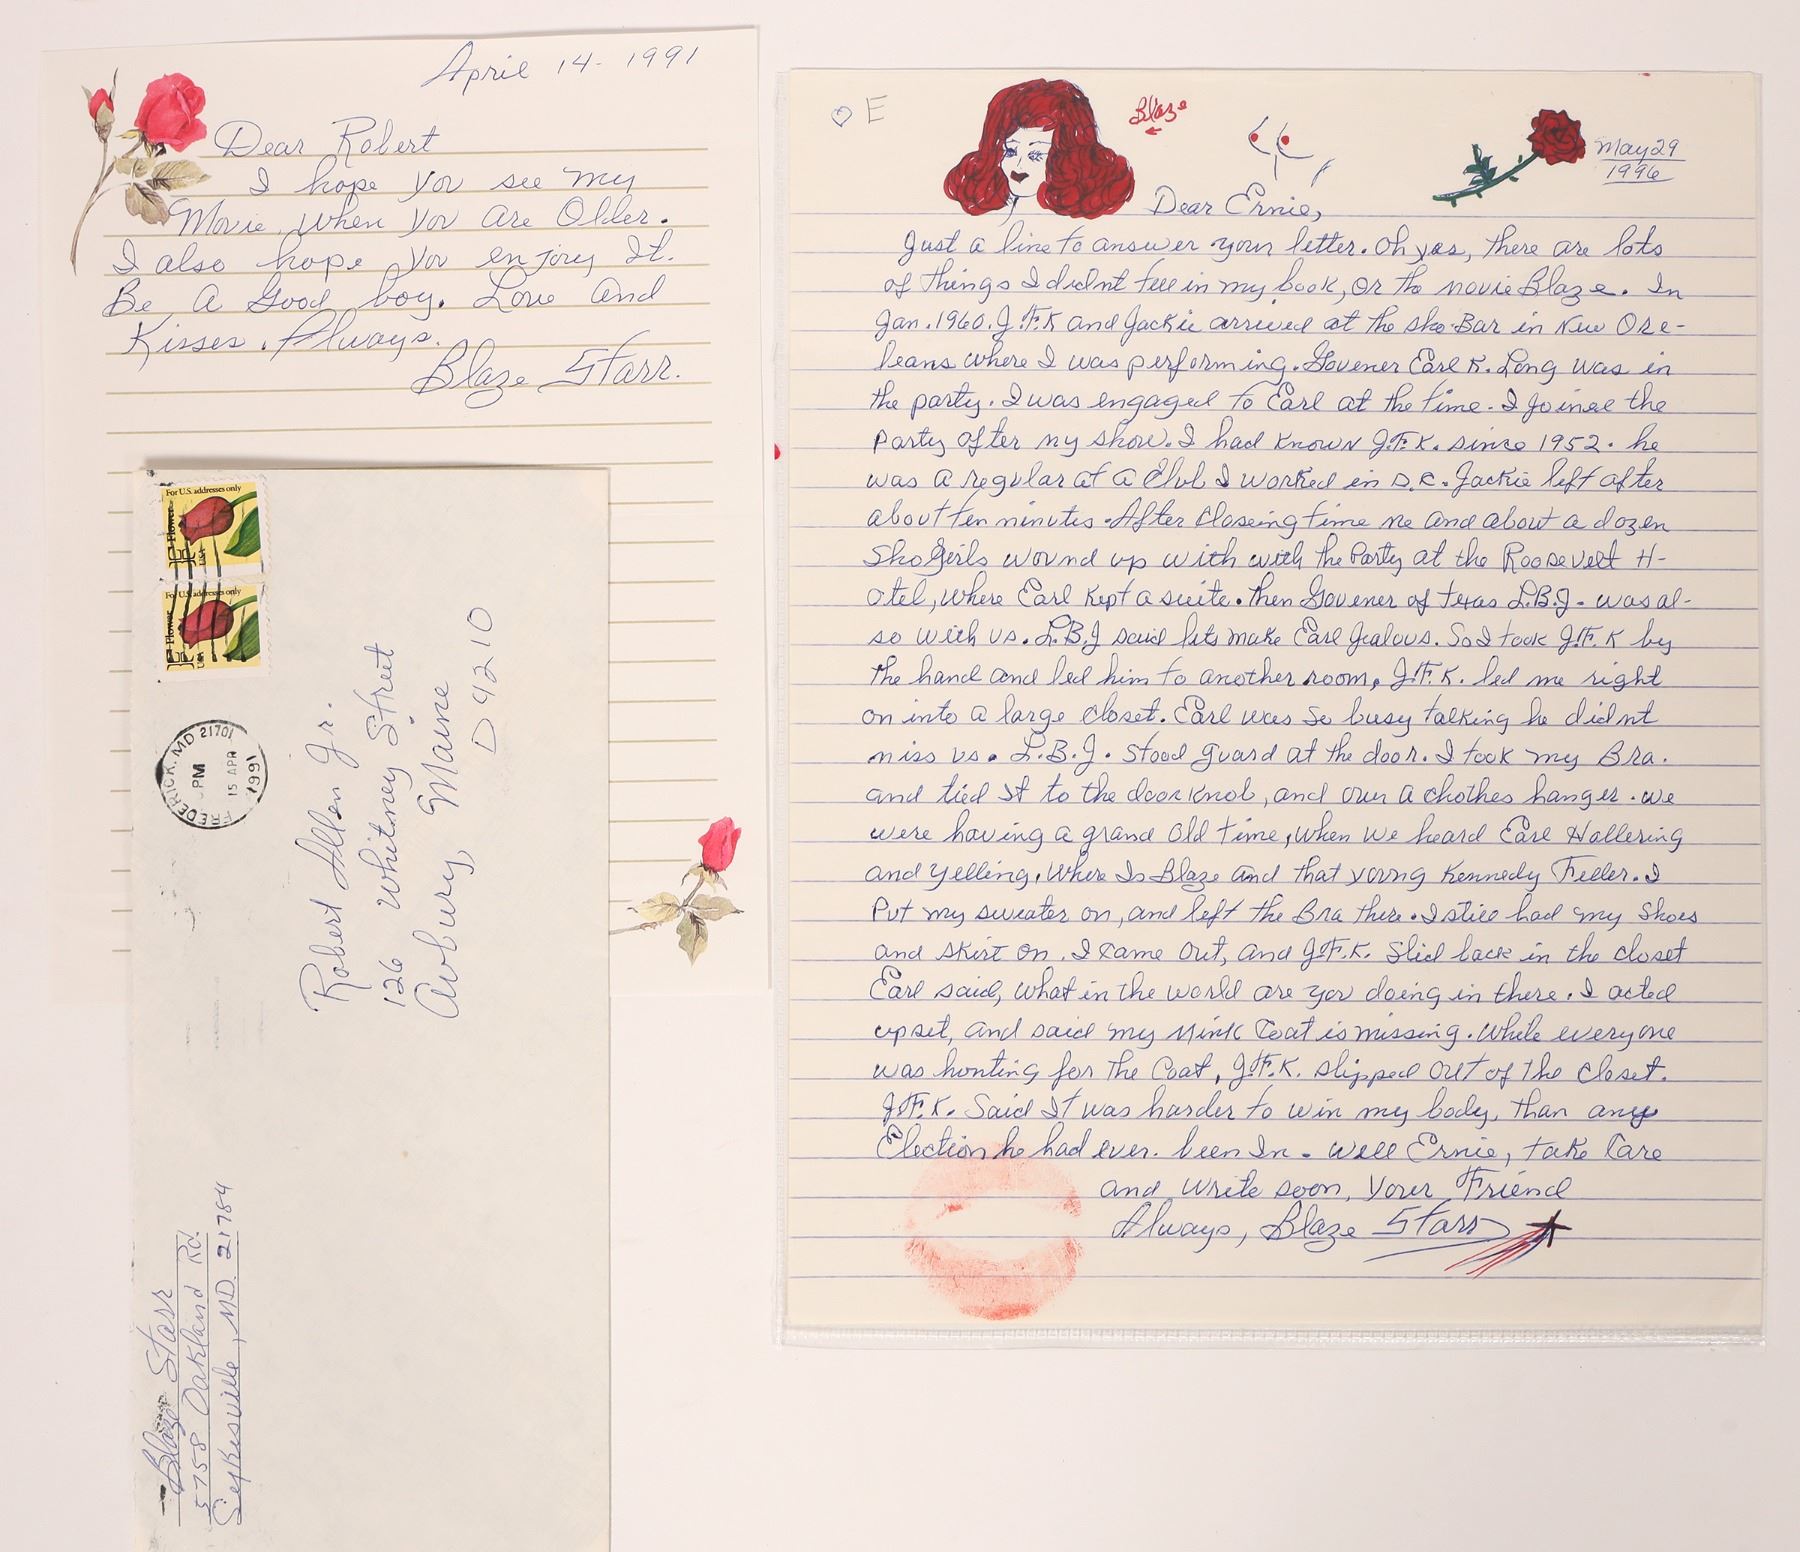 April 14- 1991
Dear Robert
I hope you see my
Movie, when you are Older.
I also hope you enjory It.
Be a Good boy. Love and
Kisses. Always.
Blaze Starr.
For U.S. addresses only
E Flower
USA
For U.S. addresses only
E Flower
USA
FREDERICK, MD 21701
PM
15 APR
1991
Robert Allen Jr.
126 Whitney Street
Auburn, Maine
04210
Blaze Starr
5758 Oakland Rd.
Sykesville, MD. 21784
E
Blaze
May 29
1996
Dear Ernie,
Just a line to answer your letter. Oh yes, there are lots
of things I didnt tell in my book, or the movie Blaze. In
Jan. 1960. J.F.K and Jackie arrived at the sho-Bar in New Ore-
leans where I was performing. Govener Earl K. Long was in
the party. I was engaged to Earl at the time. I joined the
Party after my show. I had known J.F.K. since 1952. he
was a regular at a Club I worked in D.C. Jackie left after
about ten minutes. After Closeing time me and about a dozen
Sho Girls wound up with with the Party at the Roosevelt H-
otel, where Earl kept a suite. then Govener of texas L.B.J. was al-
so with us. L.B.J said lets make Earl Jealous. So I took J.F.K by
the hand and led him to another room, J.F.K. led me right
on into a large closet. Earl was so busy talking he didnt
miss us. L.B.J. stood guard at the door. I took my Bra.
and tied It to the doorknob, and over a chothes hanger. we
were having a grand old time, when we heard Earl Hollering
and yelling, Where Is Blaze and that young Kennedy Feller. I
Put my sweater on, and left the Bra there. I still had my Shoes
and skirt on. I came out, and J.F.K. Slid back in the closet
Earl said, what in the world are you doing in there. I acted
upset, and said my Mink Coat is missing. While everyone
was hunting for the Coat, J.F.K. slipped out of the closet.
J.F.K. Said It was harder to win my body, than any
Election he had ever been In. Well Ernie, take Care
and write soon, your Friend
Always, Blaze Starr